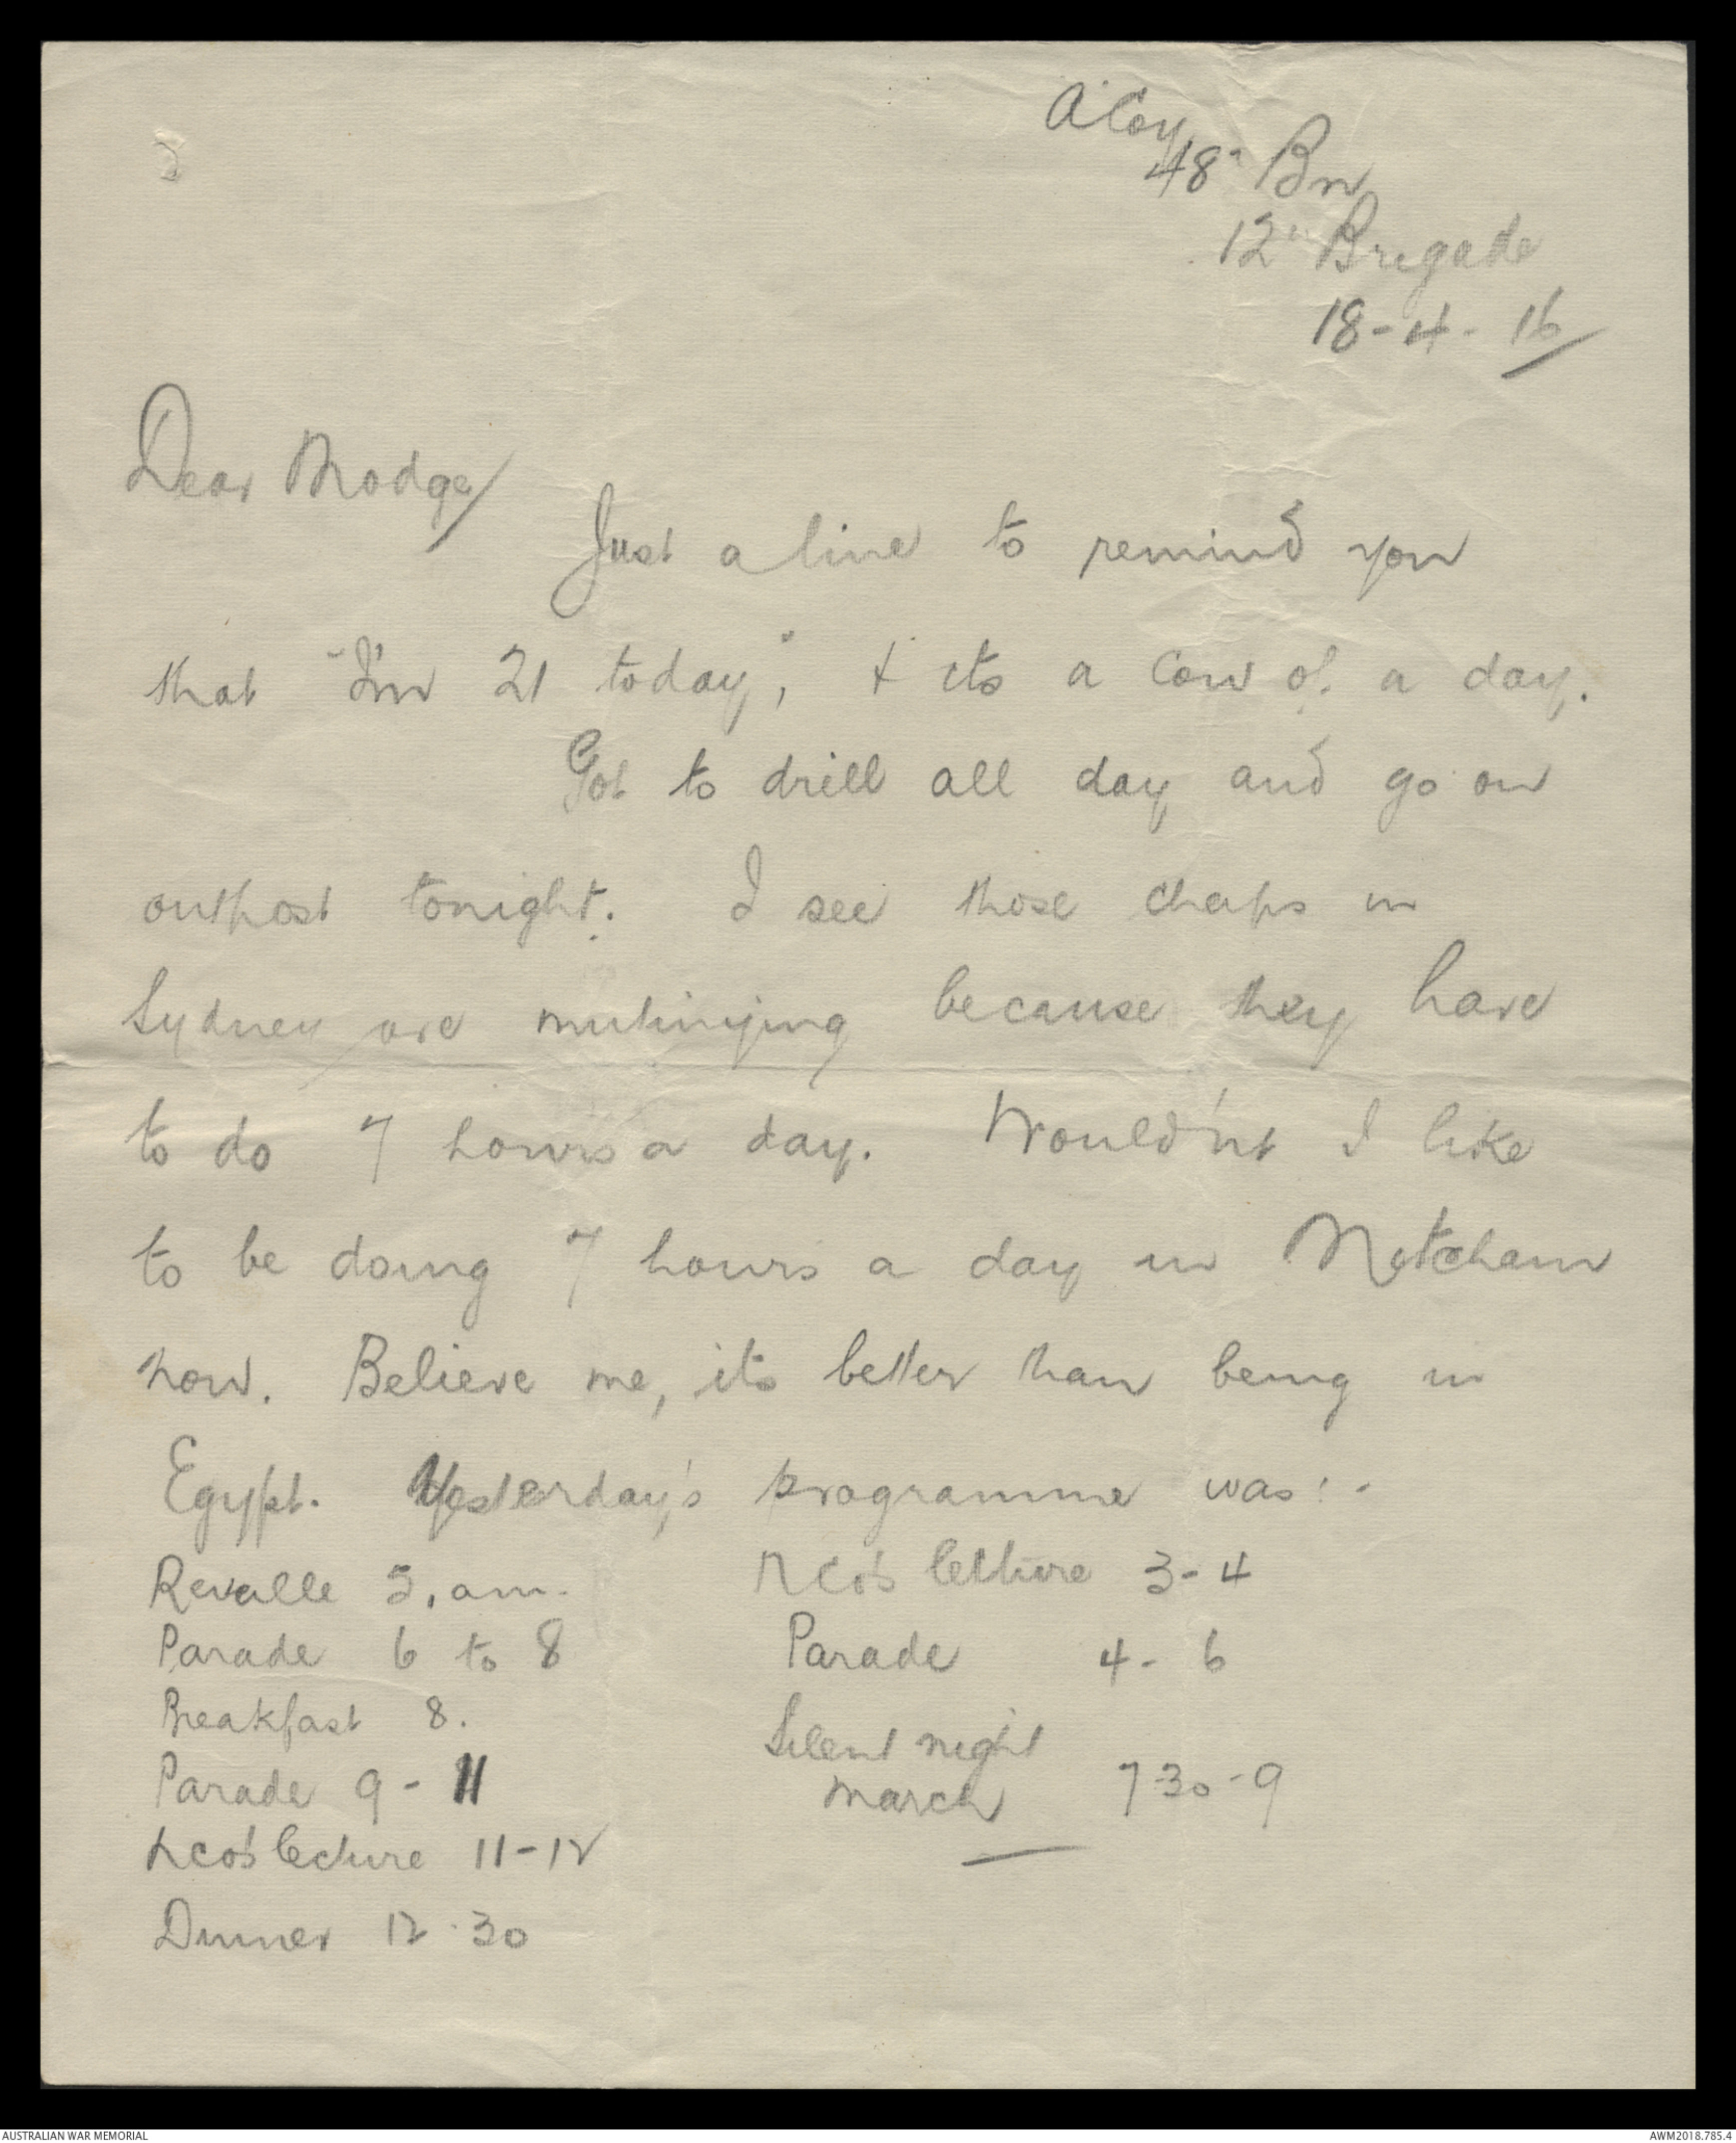 A Coy
48" Bn
12" Brigade
18-4-16
Dear Madge/
Just a line to remind you
that "I'm 21 today", & its a cow of a day.
Got to drill all day and go on
outpost tonight. I see those chaps in
Sydney are mutinying because they have
to do 7 hours a day. Would'nt I like
to be doing 7 hours a day in Mitcham
now. Believe me, its better than being in
Egypt. Yesterday's programme was:-
Revalle 5. am.
Parade 6 to 8
Breakfast 8.
Parade 9 - 11
NCO's lecture 11-12
Dinner 12.30
NCO's lecture 3-4
Parade 4-6
Silent night
march 7.30-9
AUSTRALIAN WAR MEMORIAL
AWM2018.785.4